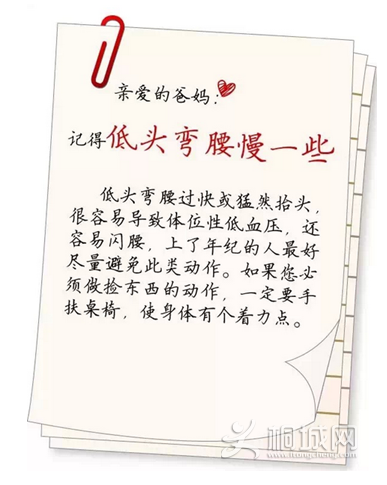 亲爱的爸妈：
记得低头弯腰慢一些
低头弯腰过快或猛然抬头，
很容易导致体位性低血压，还
容易闪腰，上了年纪的人最好
尽量避免此类动作。如果您必
须做捡东西的动作，一定要手
扶桌椅，使身体有个着力点。
桐城网
www.itongcheng.com